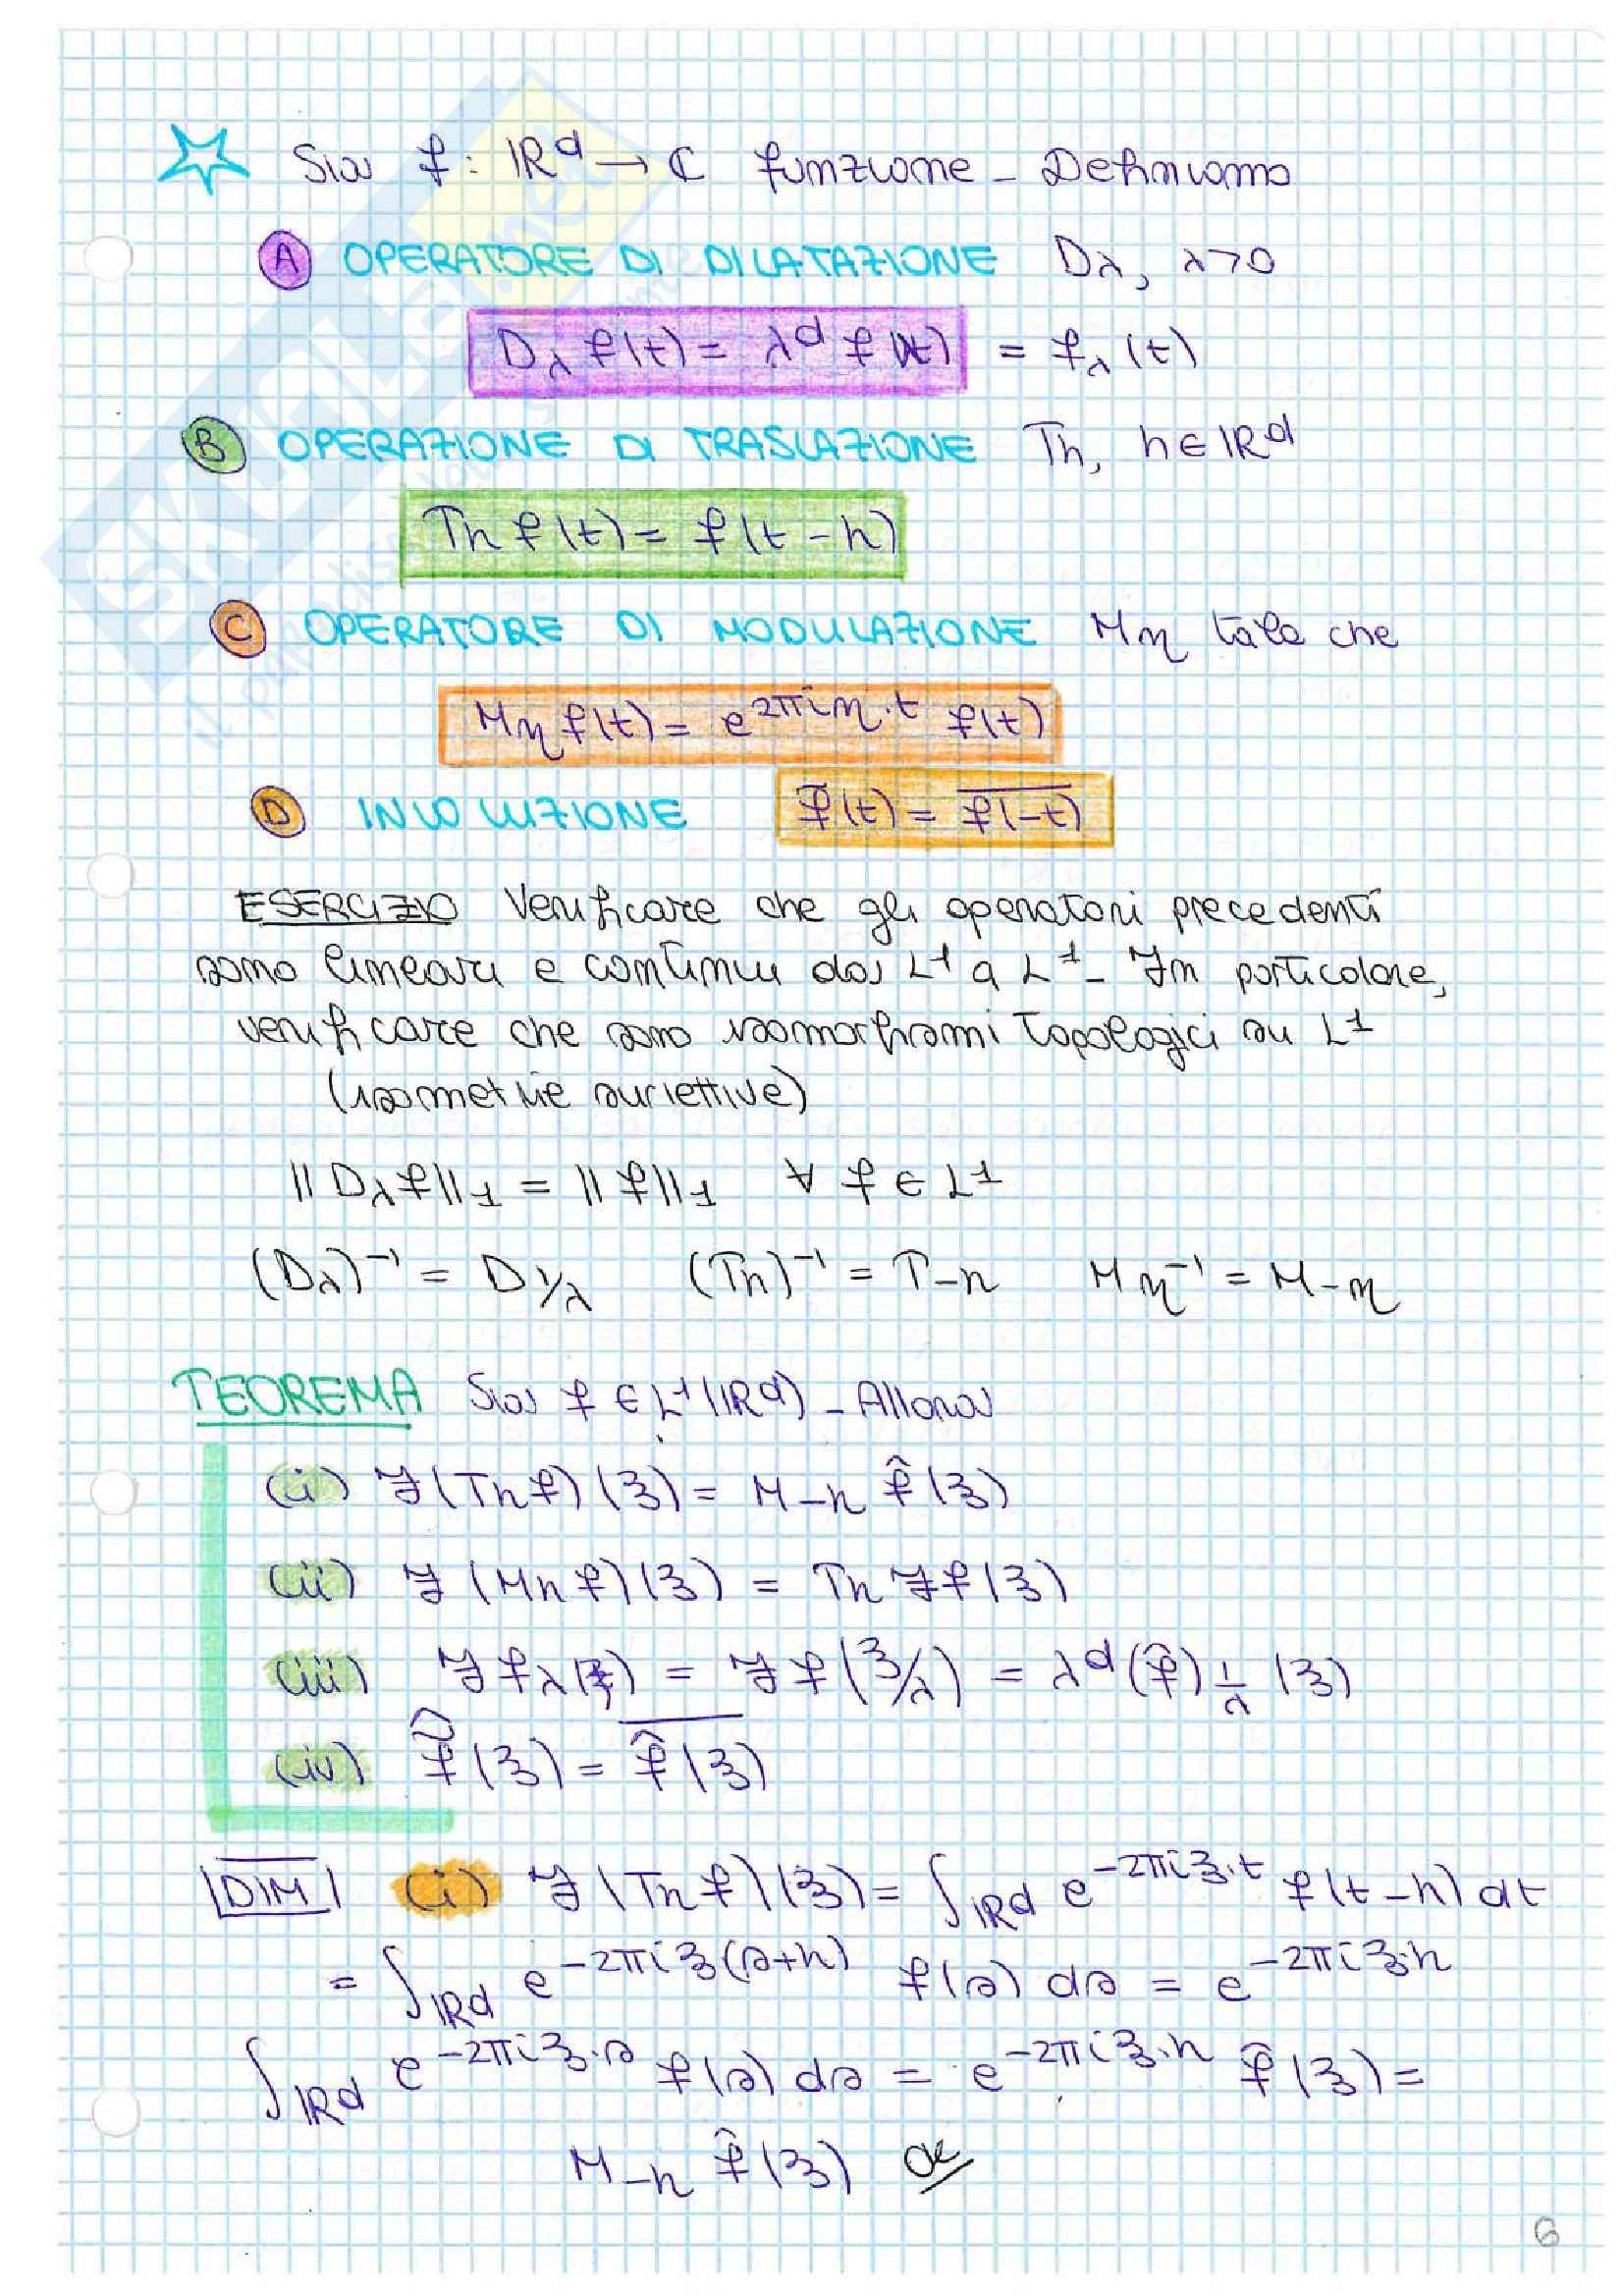 Sia f: ℝᵈ → ℂ funzione - Definiamo
A OPERATORE DI DILATAZIONE Dλ, λ>0
Dλ f(t) = λᵈ f(λt) = fλ(t)
B OPERAZIONE DI TRASLAZIONE Th, h∈ℝᵈ
Th f(t) = f(t-h)
C OPERATORE DI MODULAZIONE Mη tale che
Mη f(t) = e^{2πiη·t} f(t)
D INVOLUZIONE f̃(t) = \overline{f(-t)}
ESERCIZIO Verificare che gli operatori precedenti
sono lineari e continui da L¹ a L¹ - In particolare,
verificare che sono isomorfismi topologici su L¹
(isometrie suriettive)
||Dλf||₁ = ||f||₁ ∀ f ∈ L¹
(Dλ)⁻¹ = D1/λ (Th)⁻¹ = T-h Mη⁻¹ = M-η
TEOREMA Sia f ∈ L¹(ℝᵈ) - Allora
(i) ℱ(Thf)(ξ) = M-h f̂(ξ)
(ii) ℱ(Mhf)(ξ) = Th ℱf(ξ)
(iii) ℱfλ(ξ) = ℱf(ξ/λ) = λᵈ(f̂)1/λ (ξ)
(iv) \hat{f̃}(ξ) = \overline{f̂(ξ)}
DIM (i) ℱ(Thf)(ξ) = ∫ℝᵈ e^{-2πiξ·t} f(t-h) dt
= ∫ℝᵈ e^{-2πiξ(s+h)} f(s) ds = e^{-2πiξ·h}
∫ℝᵈ e^{-2πiξ·s} f(s) ds = e^{-2πiξ·h} f̂(ξ) =
M-h f̂(ξ) ok
6